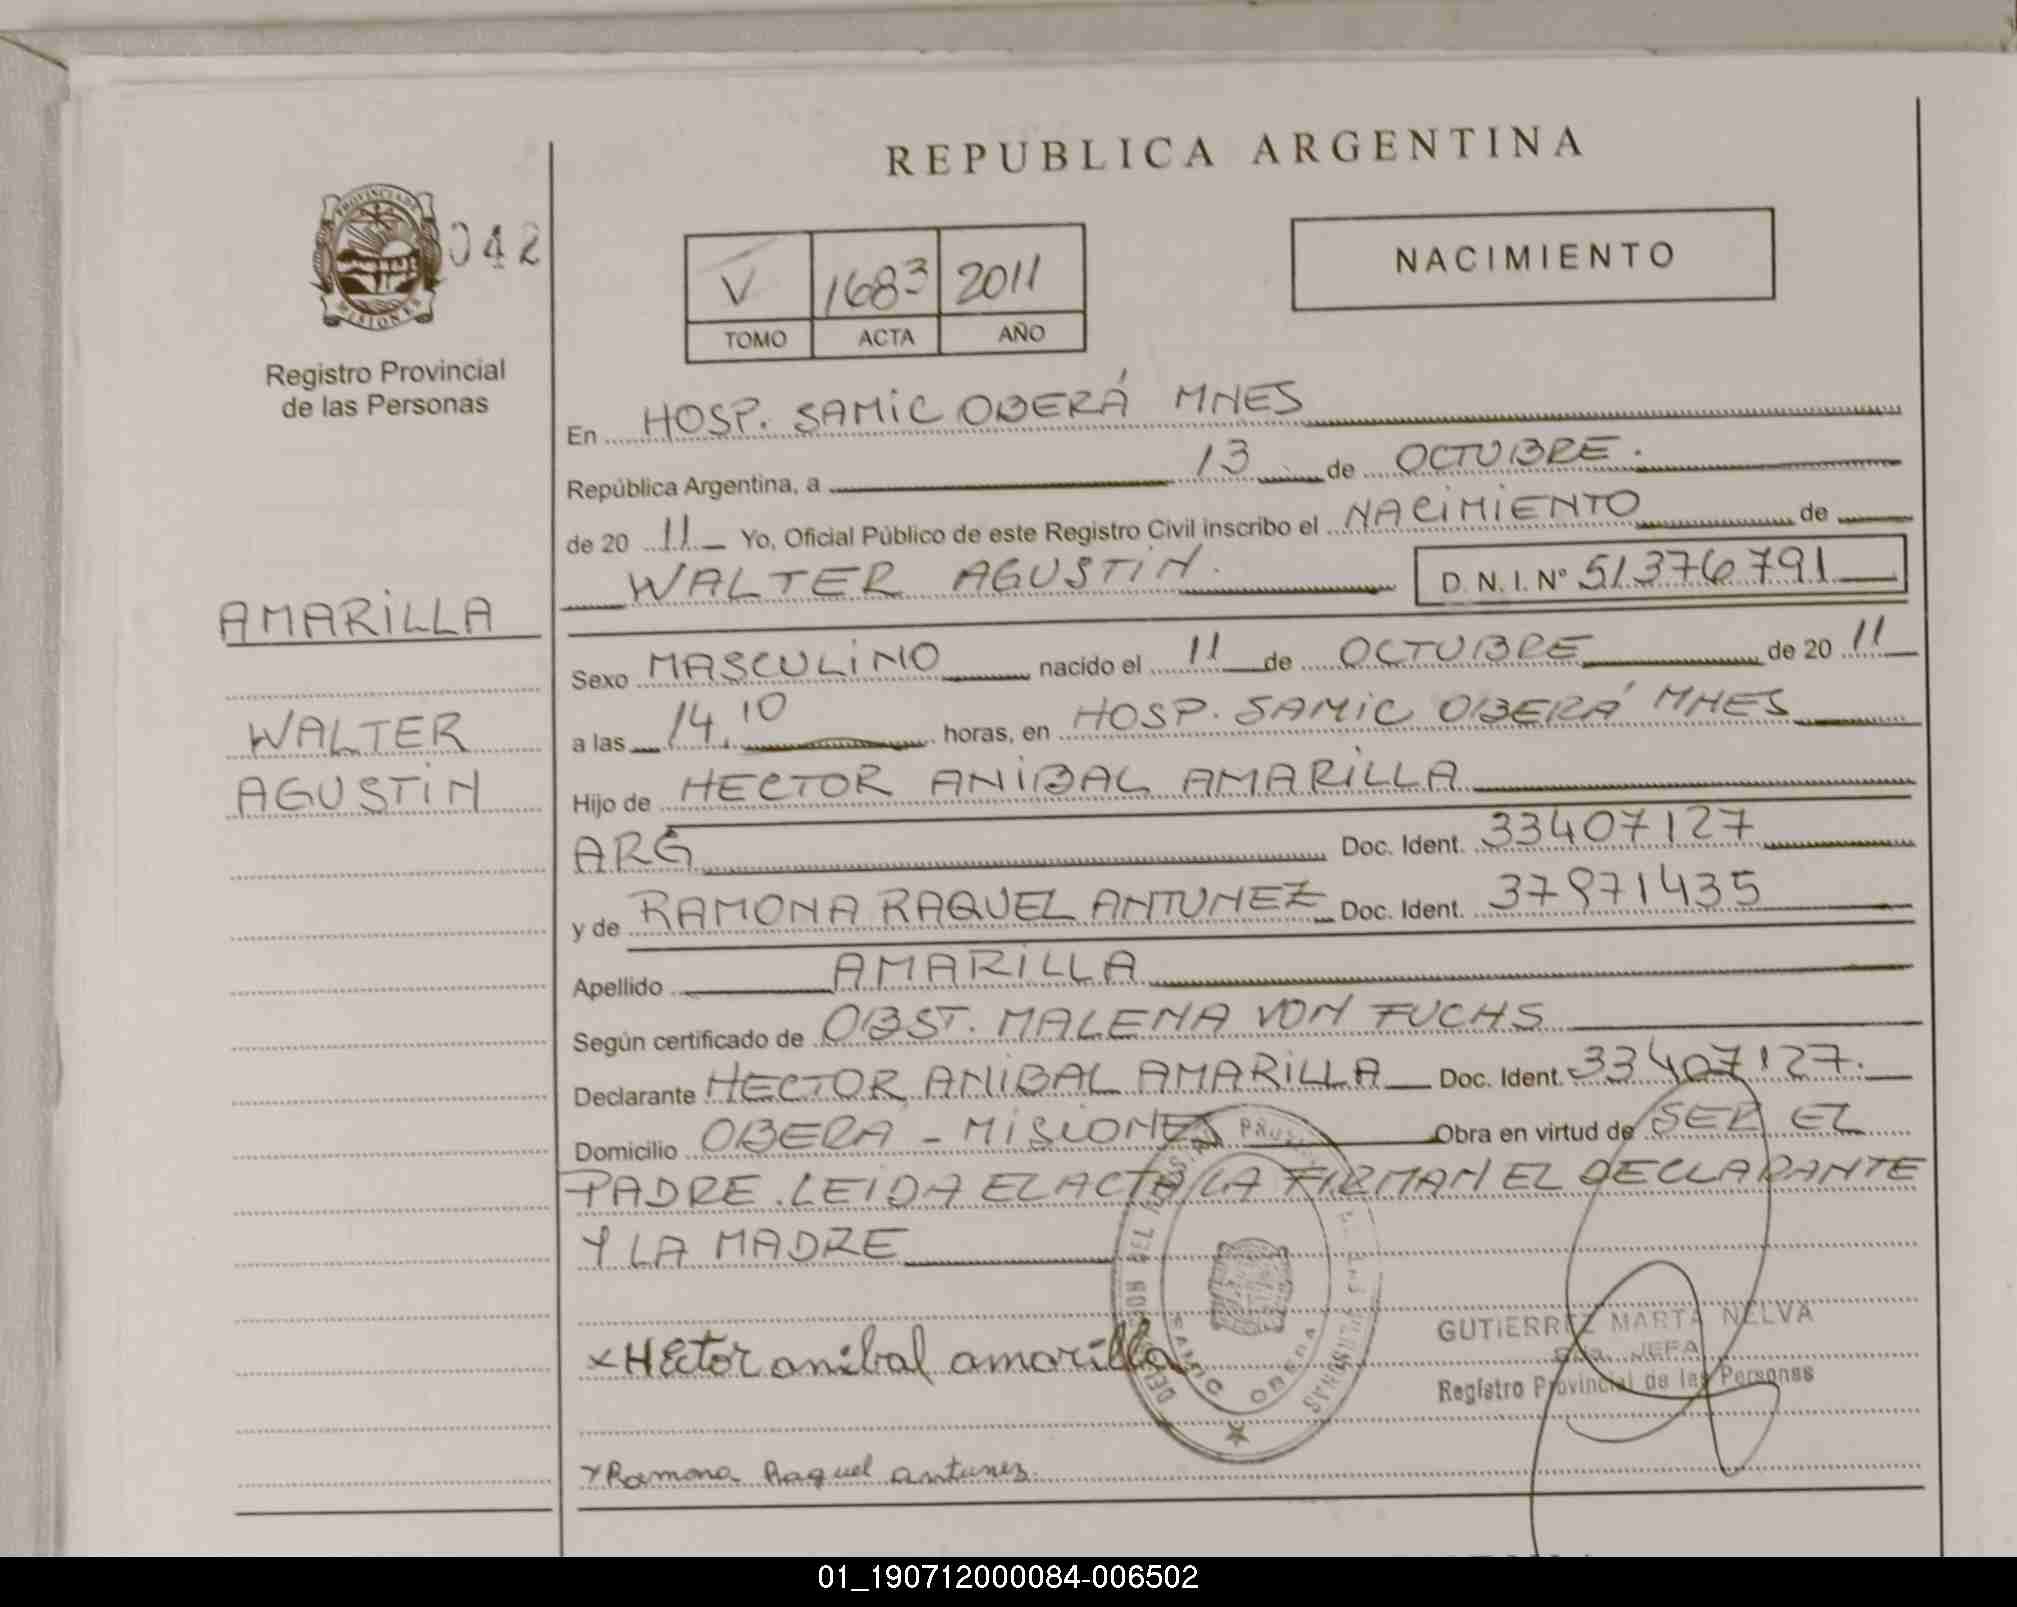 REPUBLICA ARGENTINA
PROVINCIA DE MISIONES
042
Registro Provincial
de las Personas
V 1683 2011
TOMO ACTA AÑO
NACIMIENTO
En HOSP. SAMIC OBERÁ MNES
República Argentina, a 13 de OCTUBRE.
de 20 11 Yo, Oficial Público de este Registro Civil inscribo el NACIMIENTO de
WALTER AGUSTIN. D. N. I. Nº 51376791
AMARILLA
WALTER
AGUSTIN
Sexo MASCULINO nacido el 11 de OCTUBRE de 20 11
a las 14,10 horas, en HOSP. SAMIC OBERÁ MNES
Hijo de HECTOR ANIBAL AMARILLA
ARG Doc. Ident. 33407127
y de RAMONA RAQUEL ANTUNEZ Doc. Ident. 37971435
Apellido AMARILLA
Según certificado de OBST. MALENA VON FUCHS
Declarante HECTOR ANIBAL AMARILLA Doc. Ident. 33407127.
Domicilio OBERA - MISIONES Obra en virtud de SER EL
PADRE. LEIDA EL ACTA LA FIRMAN EL DECLARANTE
Y LA MADRE
x Hector anibal amarilla
SAMIC OBERA
GUTIERREZ MARTA NELVA
JEFA
Registro Provincial de las Personas
x Ramona Raquel antunez
01_190712000084-006502